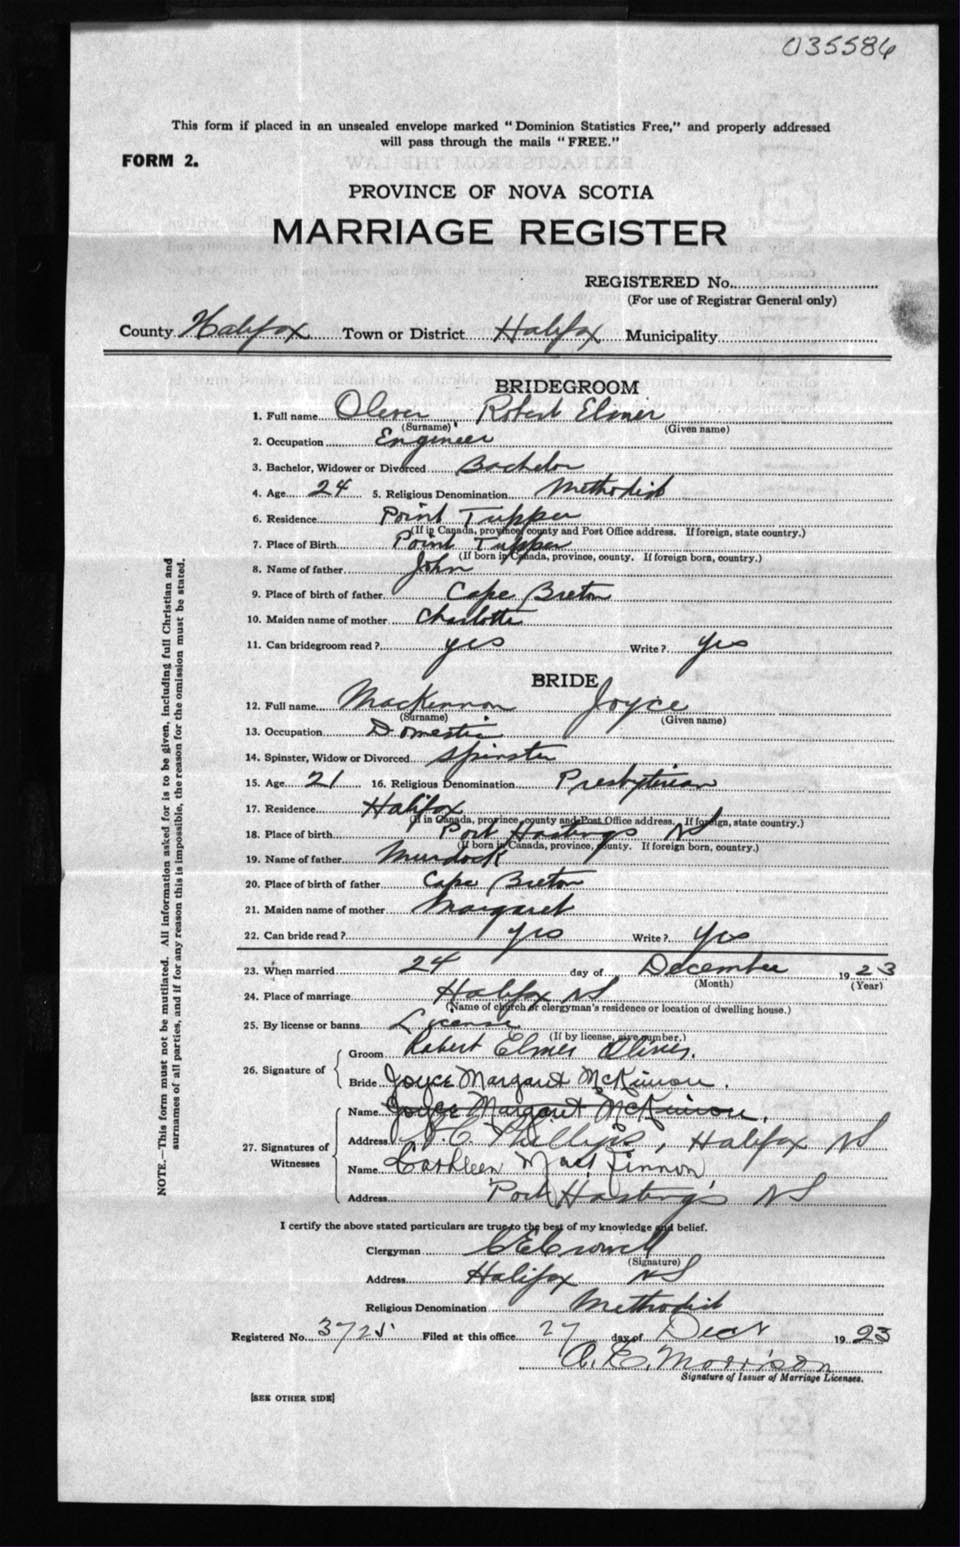 035586
This form if placed in an unsealed envelope marked "Dominion Statistics Free," and properly addressed
will pass through the mails "FREE."
FORM 2.
PROVINCE OF NOVA SCOTIA
MARRIAGE REGISTER
REGISTERED No.
(For use of Registrar General only)
County Halifax Town or District Halifax Municipality
BRIDEGROOM
1. Full name Oliver Robert Elmer
(Surname) (Given name)
2. Occupation Engineer
3. Bachelor, Widower or Divorced Bachelor
4. Age 24 5. Religious Denomination Methodist
6. Residence Point Tupper
(If in Canada, province, county and Post Office address. If foreign, state country.)
7. Place of Birth Point Tupper
(If born in Canada, province, county. If foreign born, country.)
8. Name of father John
9. Place of birth of father Cape Breton
10. Maiden name of mother Charlotte
11. Can bridegroom read? yes Write? Yes
BRIDE
12. Full name MacKinnon Joyce
(Surname) (Given name)
13. Occupation Domestic
14. Spinster, Widow or Divorced Spinster
15. Age 21 16. Religious Denomination Presbyterian
17. Residence Halifax
(If in Canada, province, county and Post Office address. If foreign, state country.)
18. Place of birth Port Hastings NS
(If born in Canada, province, county. If foreign born, country.)
19. Name of father Murdock
20. Place of birth of father Cape Breton
21. Maiden name of mother Margaret
22. Can bride read? yes Write? Yes
23. When married 24 day of December 1923
(Month) (Year)
24. Place of marriage Halifax NS
(Name of church or clergyman's residence or location of dwelling house.)
25. By license or banns License
(If by license, give number.)
26. Signature of
Groom Robert Elmer Oliver.
Bride Joyce Margaret McKinnon.
27. Signatures of Witnesses
Name Joyce Margaret McKinnon.
Address Phillips, Halifax NS
Name Cathleen MacKinnon
Address Port Hastings NS
I certify the above stated particulars are true to the best of my knowledge and belief.
Clergyman C E Crowell
(Signature)
Address Halifax NS
Religious Denomination Methodist
Registered No. 3725 Filed at this office 27 day of Decr 1923
A. E. Morrison
Signature of Issuer of Marriage Licenses.
[SEE OTHER SIDE]
NOTE.—This form must not be mutilated. All information asked for is to be given, including full Christian and
surnames of all parties, and if for any reason this is impossible, the reason for the omission must be stated.